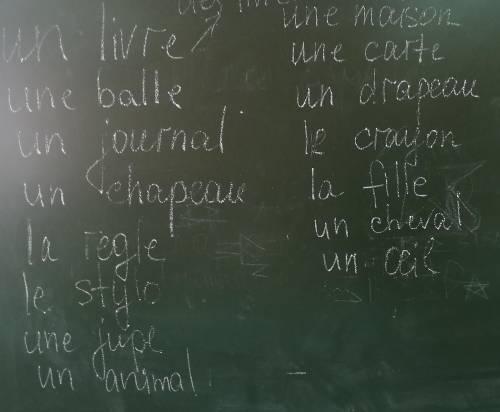 des livre
un livre
une balle
un journal
un chapeau
la règle
le stylo
une jupe
un animal
une maison
une carte
un drapeau
le crayon
la fille
un cheval
un œil